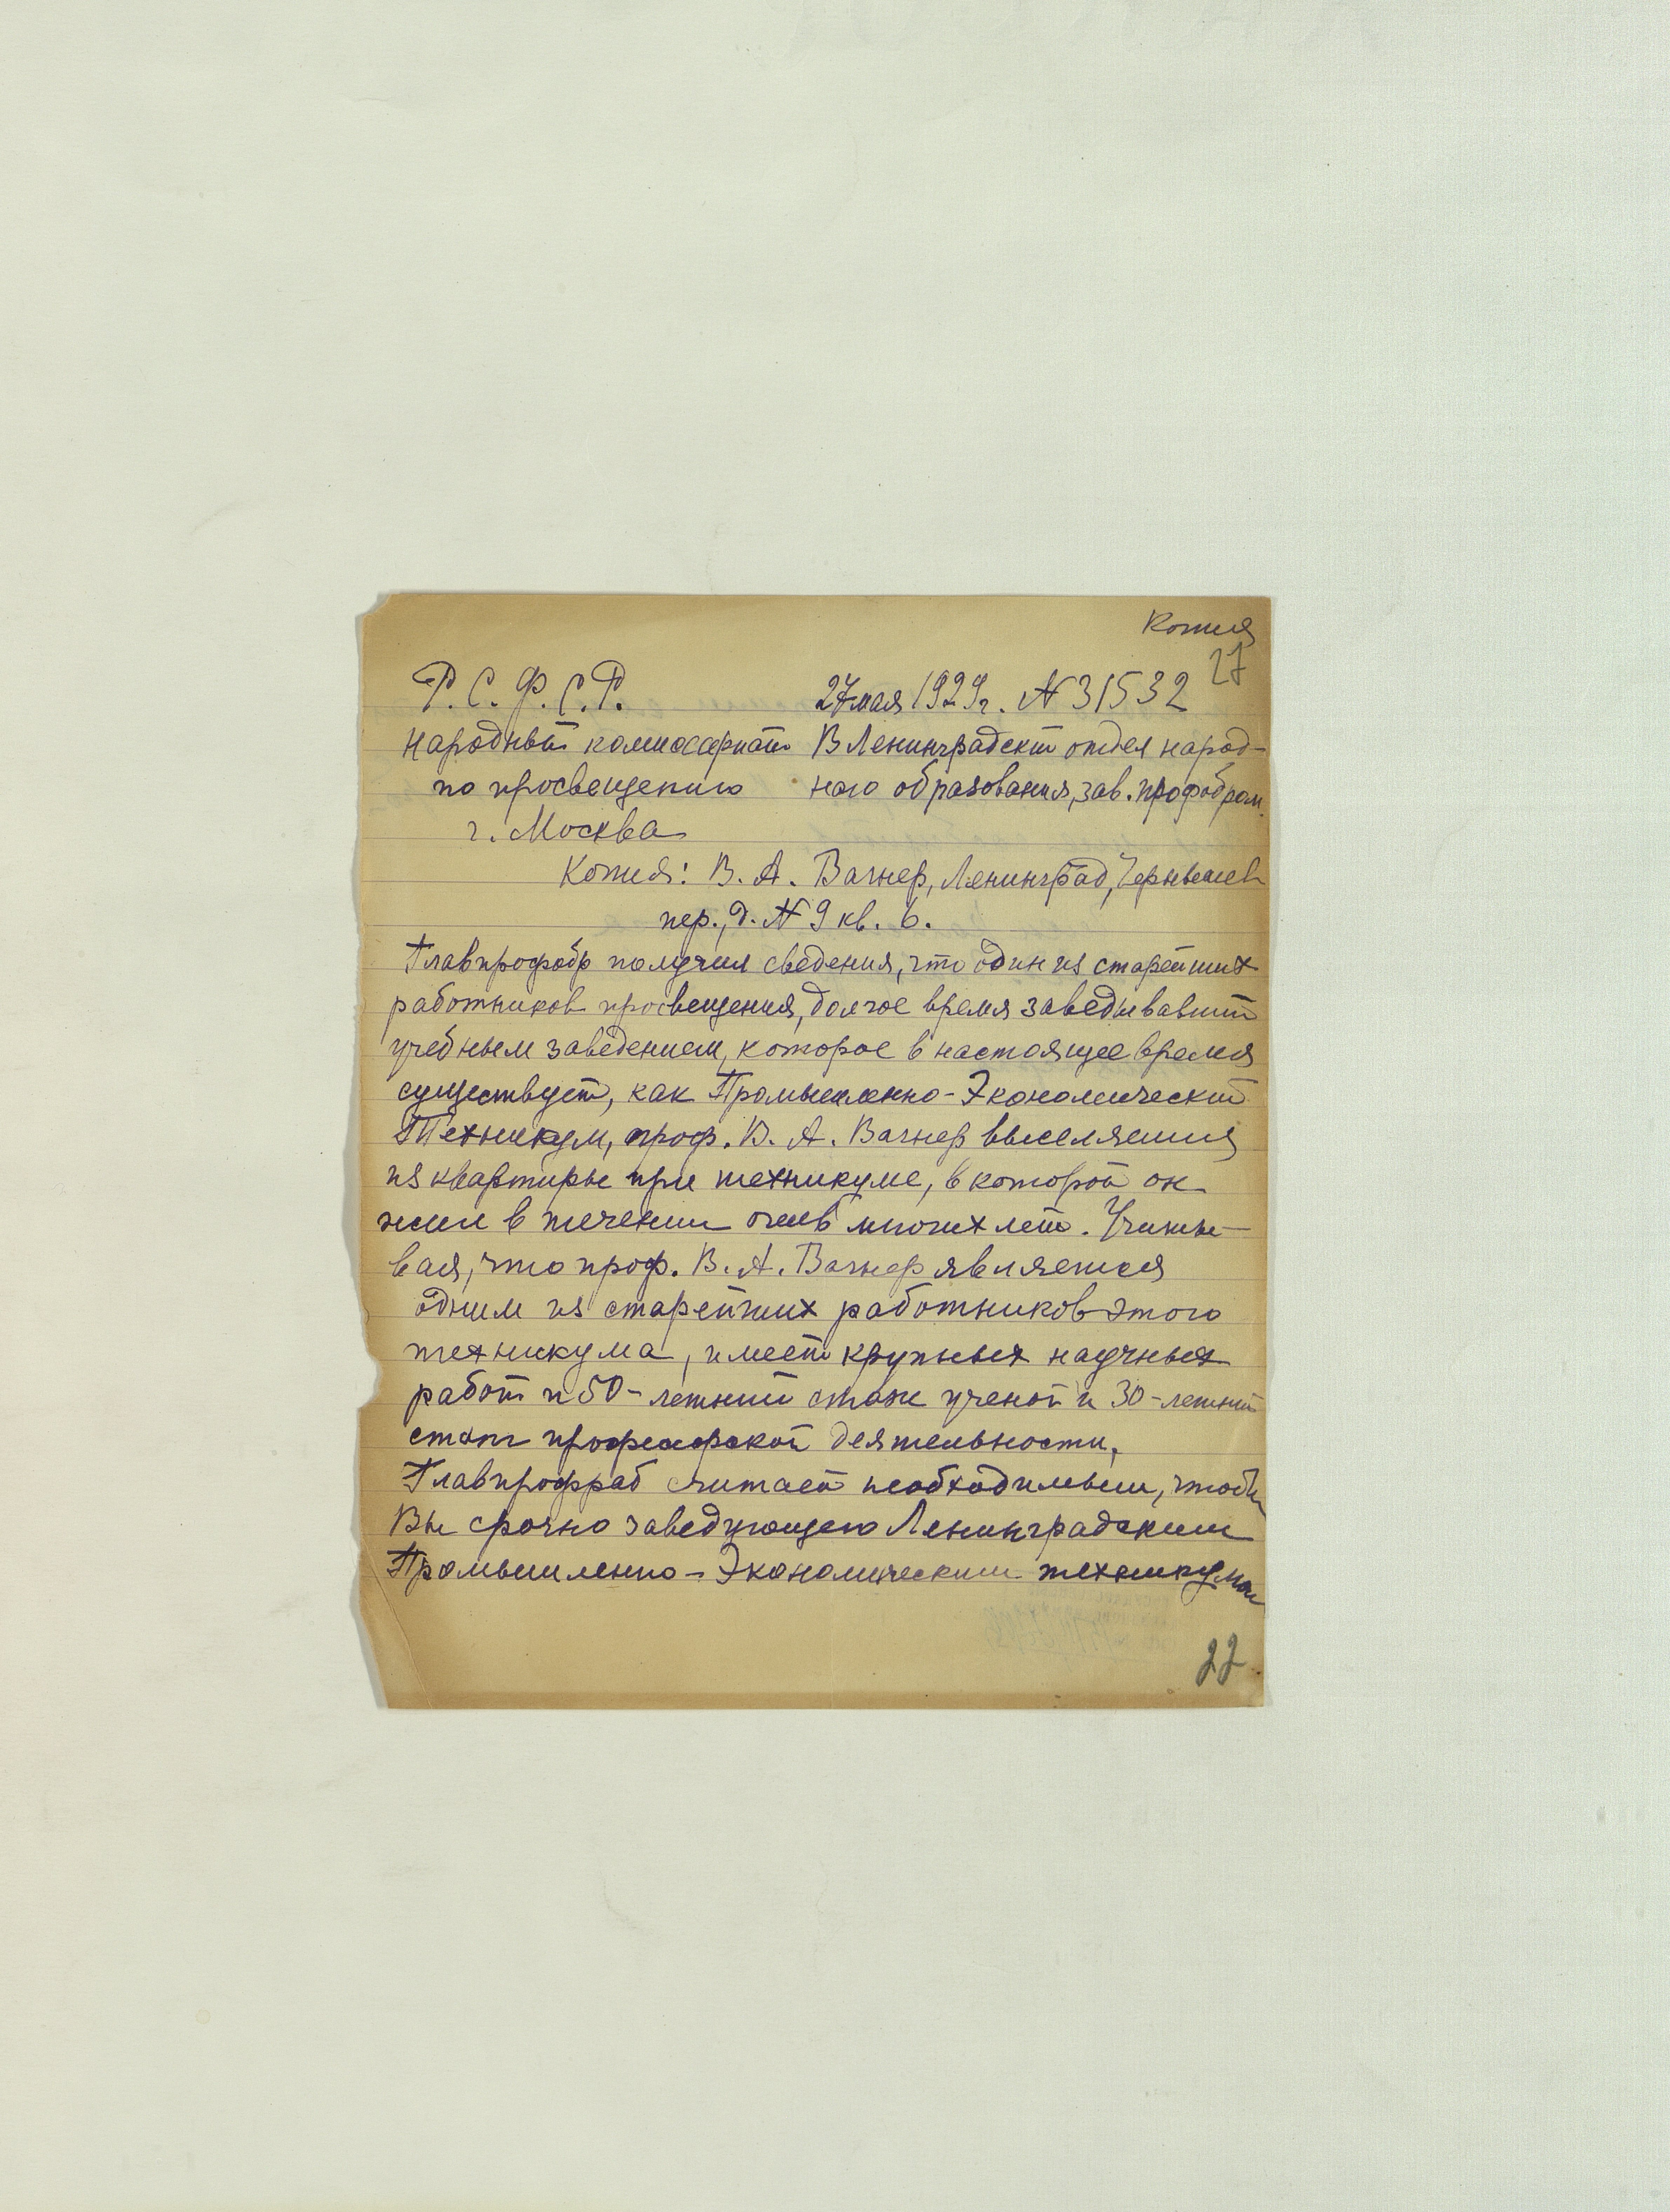 Копия
27
Р.С.Ф.С.Р. 27 мая 1929 г. № 31532
Народный комиссариат В Ленинградский отдел народ-
по просвещению ного образования, зав. профобром.
г. Москва
Копия: В. А. Вагнер, Ленинград, Чернышев
пер., д. № 9 кв. 6.
Главпрофобр получил сведения, что один из старейших
работников просвещения, долгое время заведывавший
учебным заведением, которое в настоящее время
существует, как Промышленно-Экономический
Техникум, проф. В. А. Вагнер выселяется
из квартиры при техникуме, в которой он
жил в течении очень многих лет. Учиты-
вая, что проф. В. А. Вагнер является
одним из старейших работников этого
техникума, имеет крупных научных
работ и 50-летний стаж ученой и 30-летний
стаж профессорской деятельности,
Главпрофраб считает необходимым, чтобы
Вы срочно заведующего Ленинградским
Промышленно-Экономическим техникумом
22